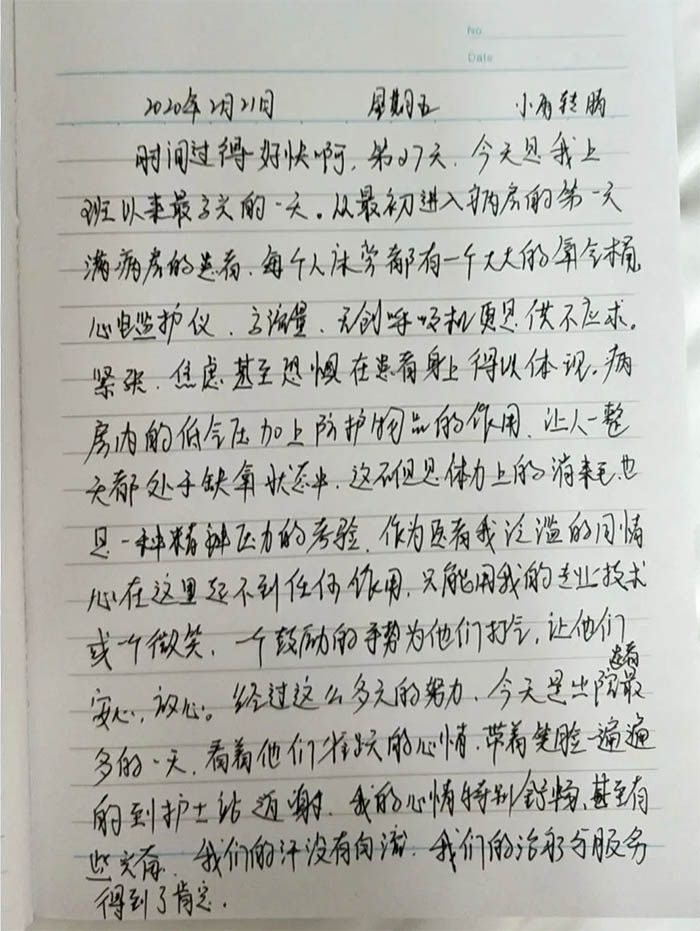 No.
Date
2020年2月21日 星期五 小雨转晴
时间过得好快啊,第27天,今天是我上
班以来最高兴的一天。从最初进入病房的第一天
满病房的患者,每个人床旁都有一个大大的氧气桶,
心电监护仪、高流量、无创呼吸机更是供不应求。
紧张、焦虑甚至恐惧在患者身上得以体现。病
房内的低气压加上防护物品的作用,让人一整
天都处于缺氧状态中,这不但是体力上的消耗也
是一种精神压力的考验,作为医者我泛滥的同情
心在这里起不到任何作用,只能用我的专业技术
或一个微笑,一个鼓励的手势为他们打气,让他们
安心,放心。经过这么多天的努力,今天是患者出院最
多的一天,看着他们雀跃的心情,带着笑脸一遍遍
的到护士站道谢,我的心情特别舒畅,甚至有
些兴奋,我们的汗没有白流,我们的治疗与服务
得到了肯定。